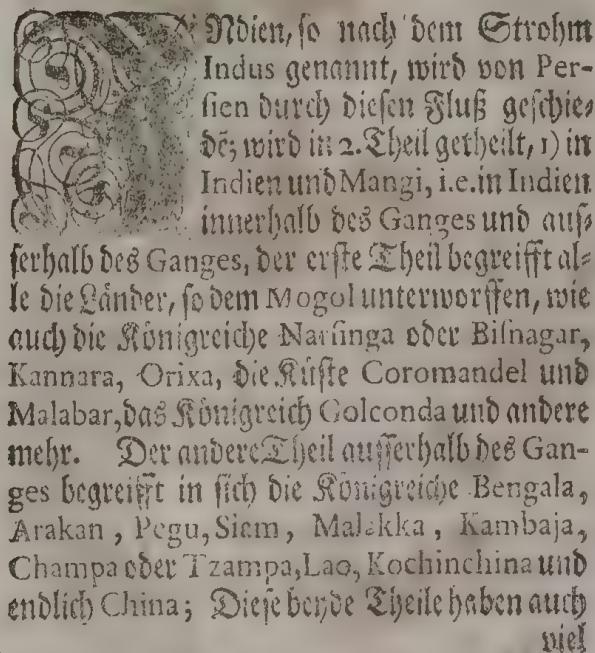 INdien, so nach dem Strohm
Indus genannt, wird von Per-
sien durch diesen Fluß geschie-
dē; wird in 2. Theil getheilt, 1) in
Indien und Mangi, i.e. in Indien
innerhalb des Ganges und aus-
serhalb des Ganges, der erste Theil begreifft al-
le die Länder, so dem Mogol unterworffen, wie
auch die Königreiche Narsinga oder Bisnagar,
Kannara, Orixa, die Küste Coromandel und
Malabar, das Königreich Golconda und andere
mehr. Der andere Theil ausserhalb des Gan-
ges begreifft in sich die Königreiche Bengala,
Arakan, Pegu, Siam, Malakka, Kambaja,
Champa oder Tzampa, Lao, Kochinchina und
endlich China; Diese beyde Theile haben auch
viel